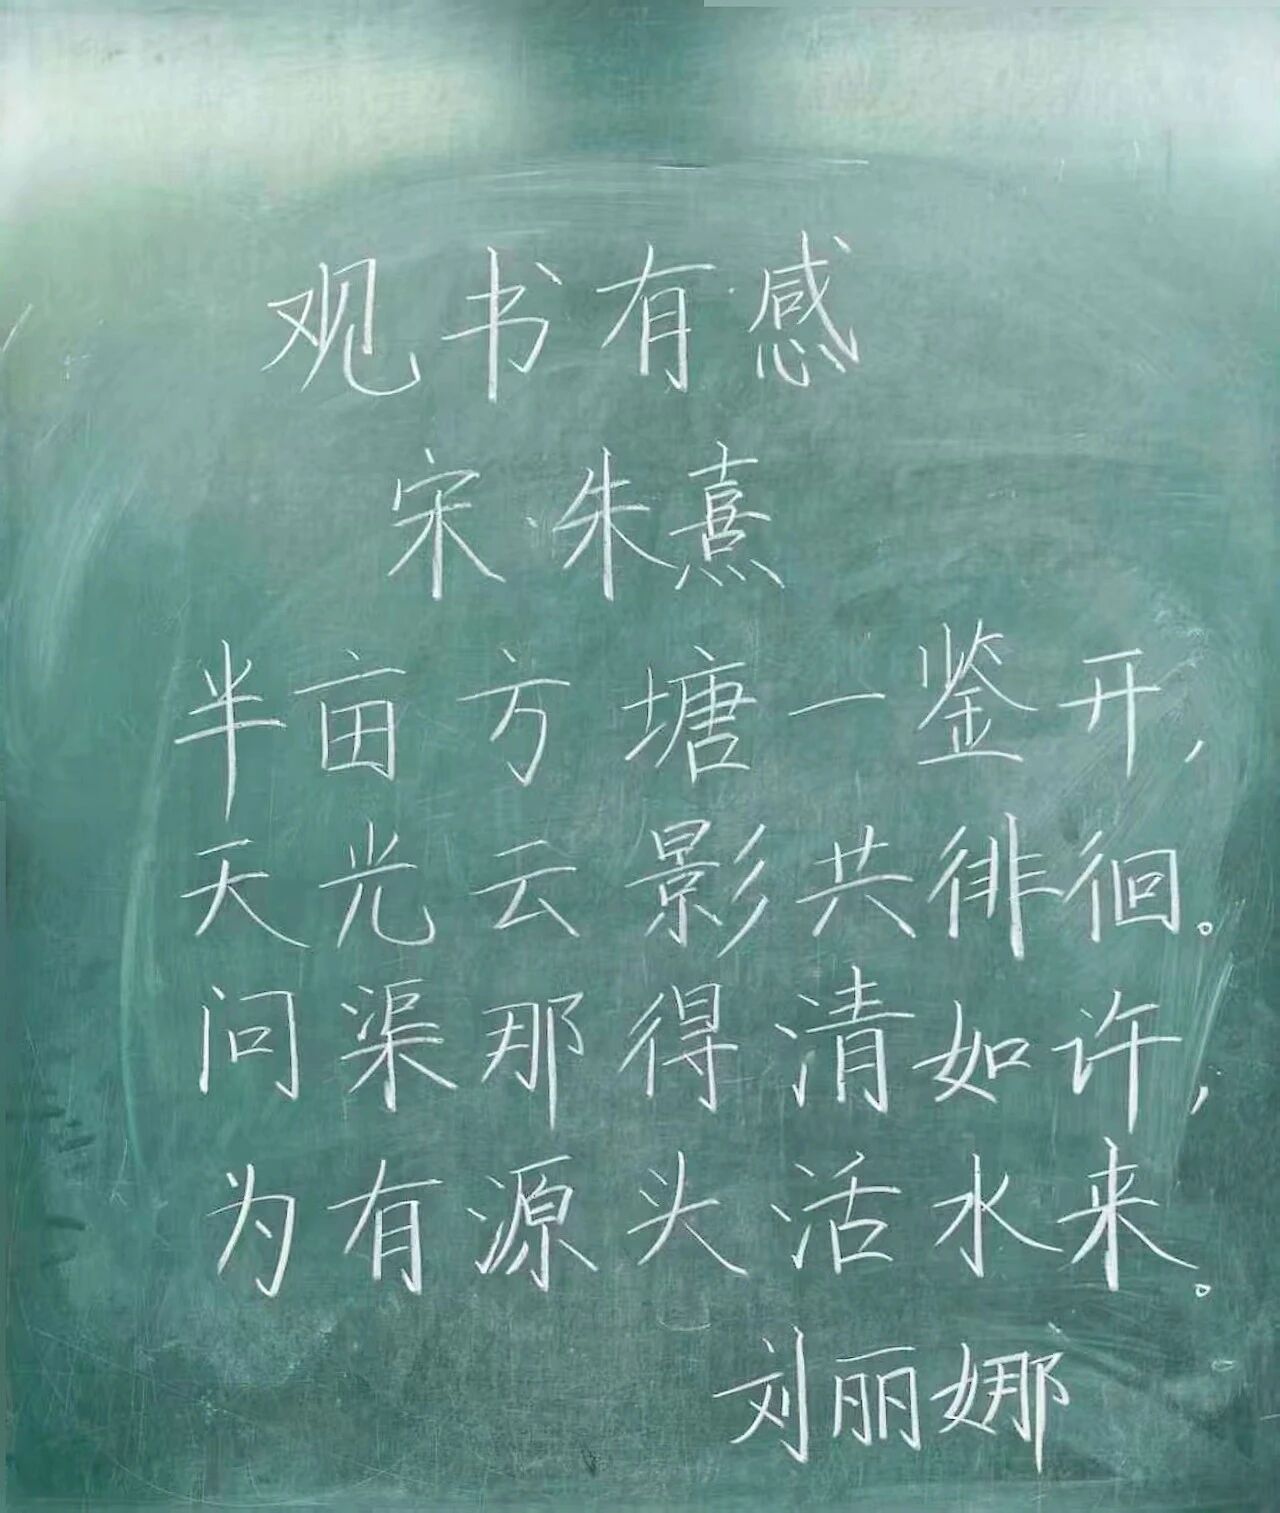 观书有感
宋·朱熹
半亩方塘一鉴开，
天光云影共徘徊。
问渠那得清如许，
为有源头活水来。
刘丽娜